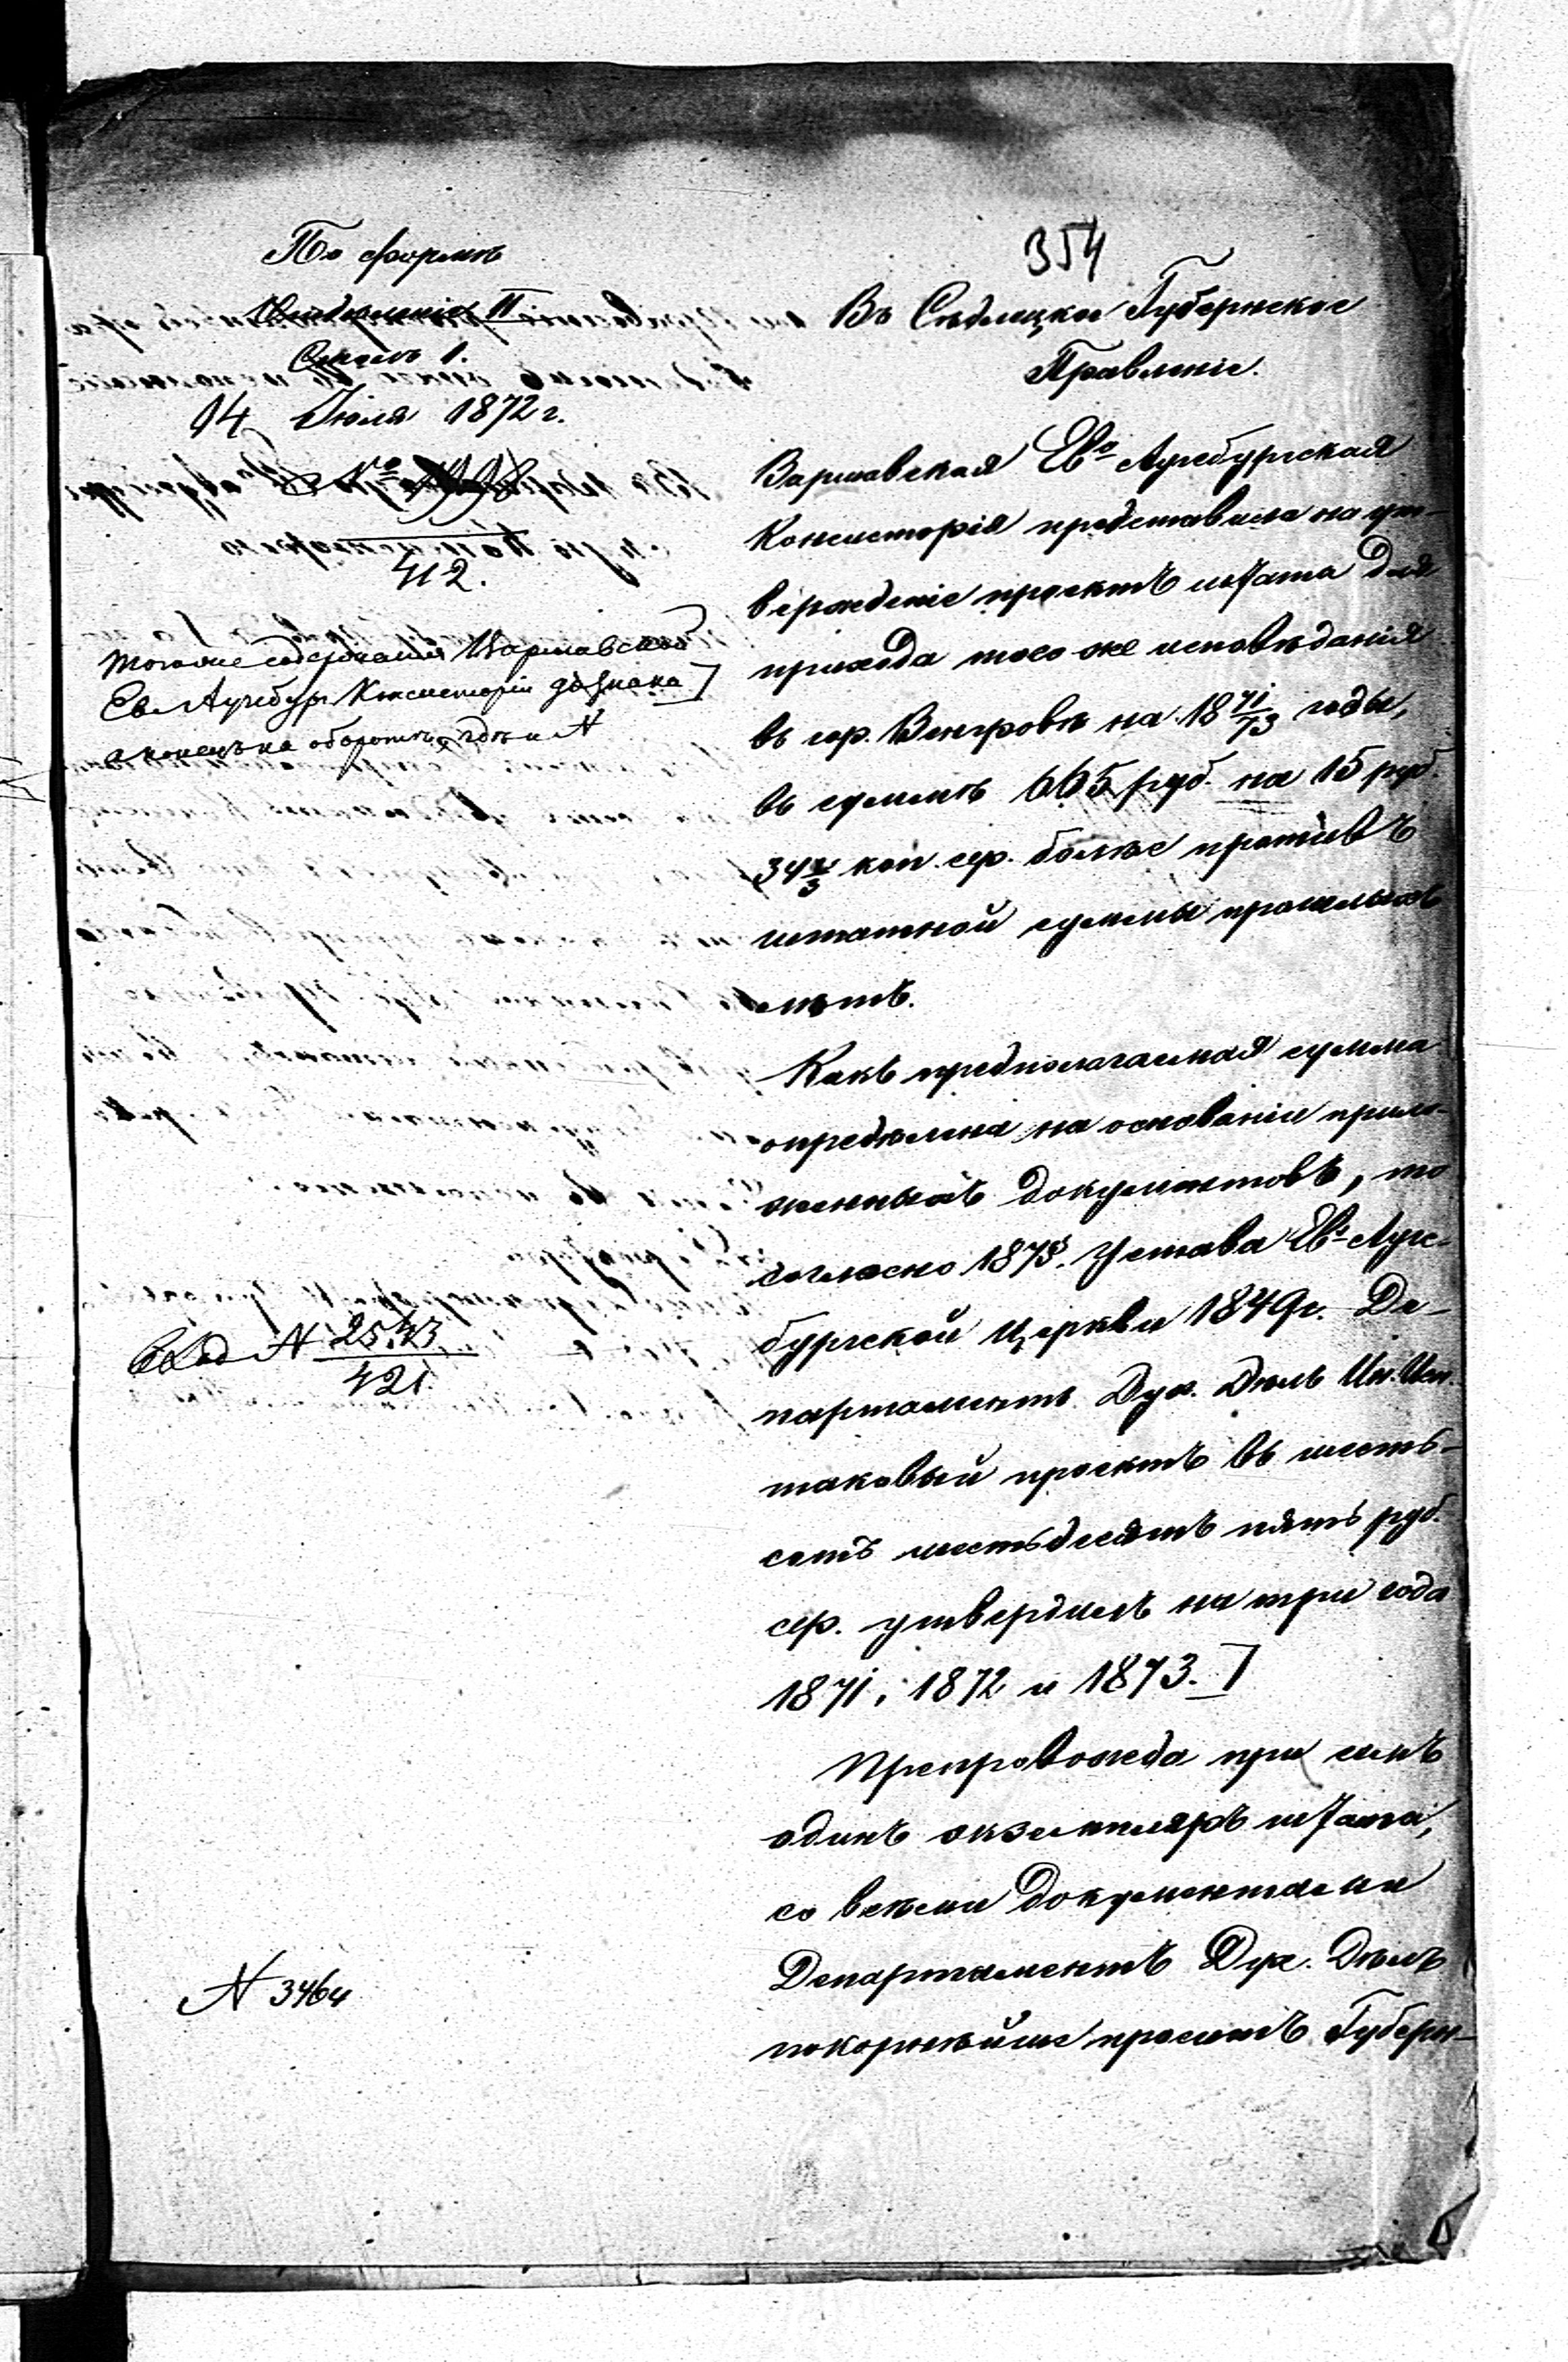 354
По формѣ
Отдѣленіе II
Столъ 1.
14 Іюля 1872 г.
№
412.
Тогоже содержанія Варшавской
Ев. Аугсбур. Консисторіи до знака ]
а конецъ на оборотѣ
Вход № 2543
421.
№ 3464
Въ Сѣдлецкое Губернское
Правленіе.
Варшавская Ев.º Аугсбургская
Консисторія представила на ут-
вержденіе проектъ штата для
прихода того же исповѣданія
въ гор. Венгровѣ на 18 71/73 годы,
въ суммѣ 665 руб. на 15 руб.
34 коп. сер. болѣе противъ
штатной суммы прошлыхъ
лѣтъ.
Какъ предполагаемая сумма
опредѣлена на основаніи прило-
женныхъ документовъ, то
согласно 187 §. Устава Ев.º Аугс-
бургской Церкви 1849 г. Де-
партаментъ Дух. Дѣлъ Ин. Исп.
таковый проектъ въ шесть-
сотъ шестьдесятъ пять руб.
сер. утвердилъ на три года
1871, 1872 и 1873. ]
Препровождая при семъ
одинъ экземпляръ штата,
со всѣми документами
Департаментъ Дух. Дѣлъ
покорнѣйше проситъ Губерн-